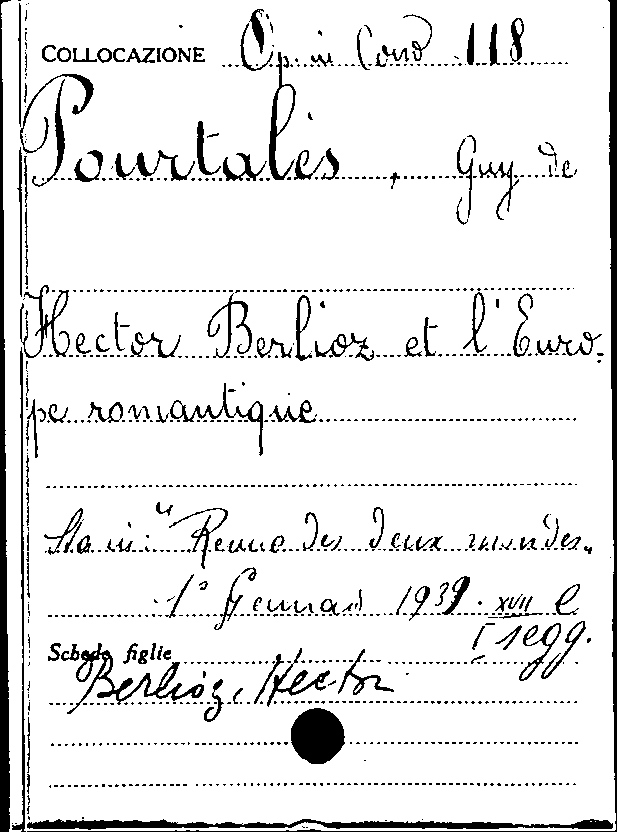 COLLOCAZIONE Op. in Cors 118
Pourtalès, Guy de
Hector Berlioz et l'Euro-
pe romantique
Sta in: "Revue des deux mondes"
1° Gennaio 1939. XVII e
segg.
Schede figlie
Berlioz, Hector